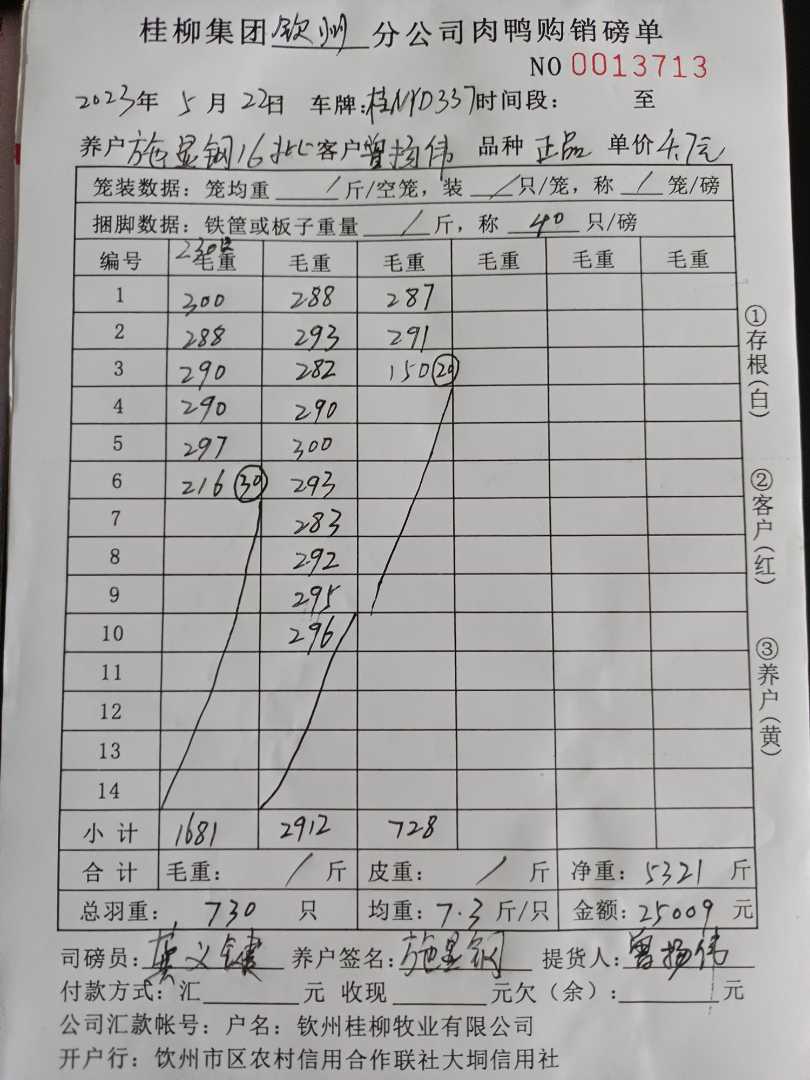 桂柳集团钦州分公司肉鸭购销磅单
NO 0013713
2023年5月22日 车牌:桂NYD337时间段: 至
养户施显钢16批客户曾扬伟 品种正品 单价4.7元
笼装数据:笼均重/斤/空笼,装/只/笼,称/笼/磅
捆脚数据:铁筐或板子重量/斤,称40只/磅
230只
编号 毛重 毛重 毛重 毛重 毛重 毛重
1 300 288 287
2 288 293 291
3 290 282 150 20
4 290 290
5 297 300
6 216 30 293
7 283
8 292
9 295
10 296
11
12
13
14
小计 1681 2912 728
合计 毛重:/斤 皮重:/斤 净重:5321斤
总羽重:730只 均重:7.3斤/只 金额:25009元
司磅员: 养户签名:施显钢 提货人:曾扬伟
付款方式:汇 元 收现 元欠(余): 元
公司汇款帐号:户名:钦州桂柳牧业有限公司
开户行:钦州市区农村信用合作联社大垌信用社
①存根(白)
②客户(红)
③养户(黄)